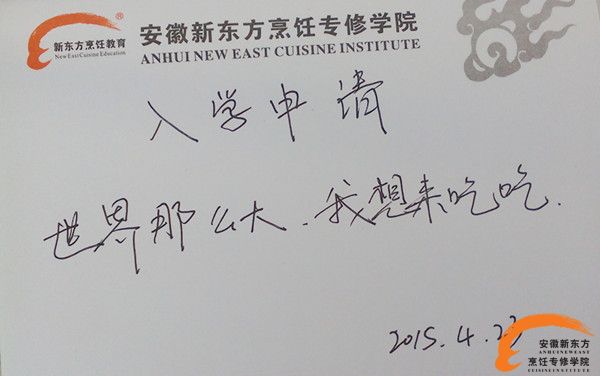 新东方烹饪教育
New East Cuisine Education
安徽新东方烹饪专修学院
ANHUI NEW EAST CUISINE INSTITUTE
入学申请
世界那么大、我想来吃吃.
2015.4.23
安徽新东方
ANHUINEWEAST
烹饪专修学院
CUISINE INSTITUTE